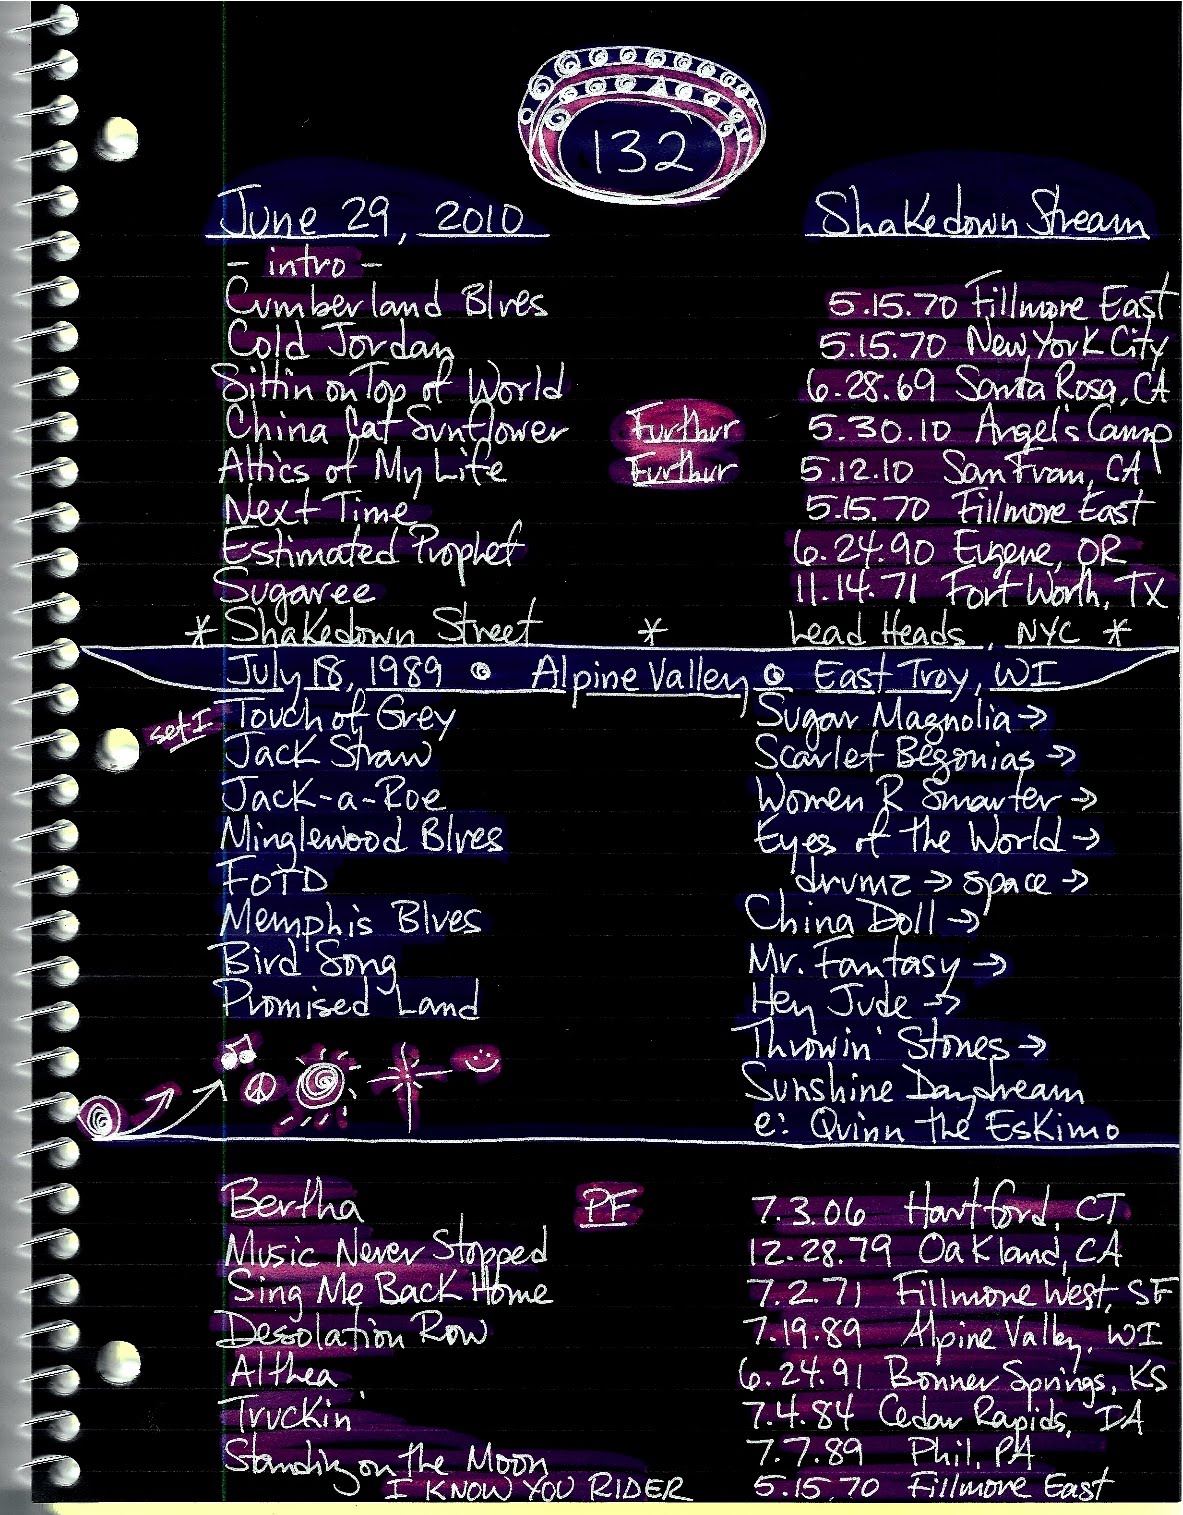 132
June 29, 2010 Shakedown Stream
- intro -
Cumberland Blues 5.15.70 Fillmore East
Cold Jordan 5.15.70 New York City
Sittin on Top of World 6.28.69 Santa Rosa, CA
China Cat Sunflower Furthur 5.30.10 Angel's Camp
Attics of My Life Furthur 5.12.10 San Fran, CA
Next Time 5.15.70 Fillmore East
Estimated Prophet 6.24.90 Eugene, OR
Sugaree 11.14.71 Fort Worth, TX
* Shakedown Street * Lead Heads, NYC *
July 18, 1989 Alpine Valley East Troy, WI
set I Touch of Grey Sugar Magnolia →
Jack Straw Scarlet Begonias →
Jack-a-Roe Women R Smarter →
Minglewood Blues Eyes of the World →
FOTD drumz → space →
Memphis Blues China Doll →
Bird Song Mr. Fantasy →
Promised Land Hey Jude →
Throwin' Stones →
Sunshine Daydream
e: Quinn the Eskimo
Bertha PF 7.3.06 Hartford, CT
Music Never Stopped 12.28.79 Oakland, CA
Sing Me Back Home 7.2.71 Fillmore West, SF
Desolation Row 7.19.89 Alpine Valley, WI
Althea 6.24.91 Bonner Springs, KS
Truckin' 7.4.84 Cedar Rapids, IA
Standing on the Moon 7.7.89 Phil, PA
I KNOW YOU RIDER 5.15.70 Fillmore East